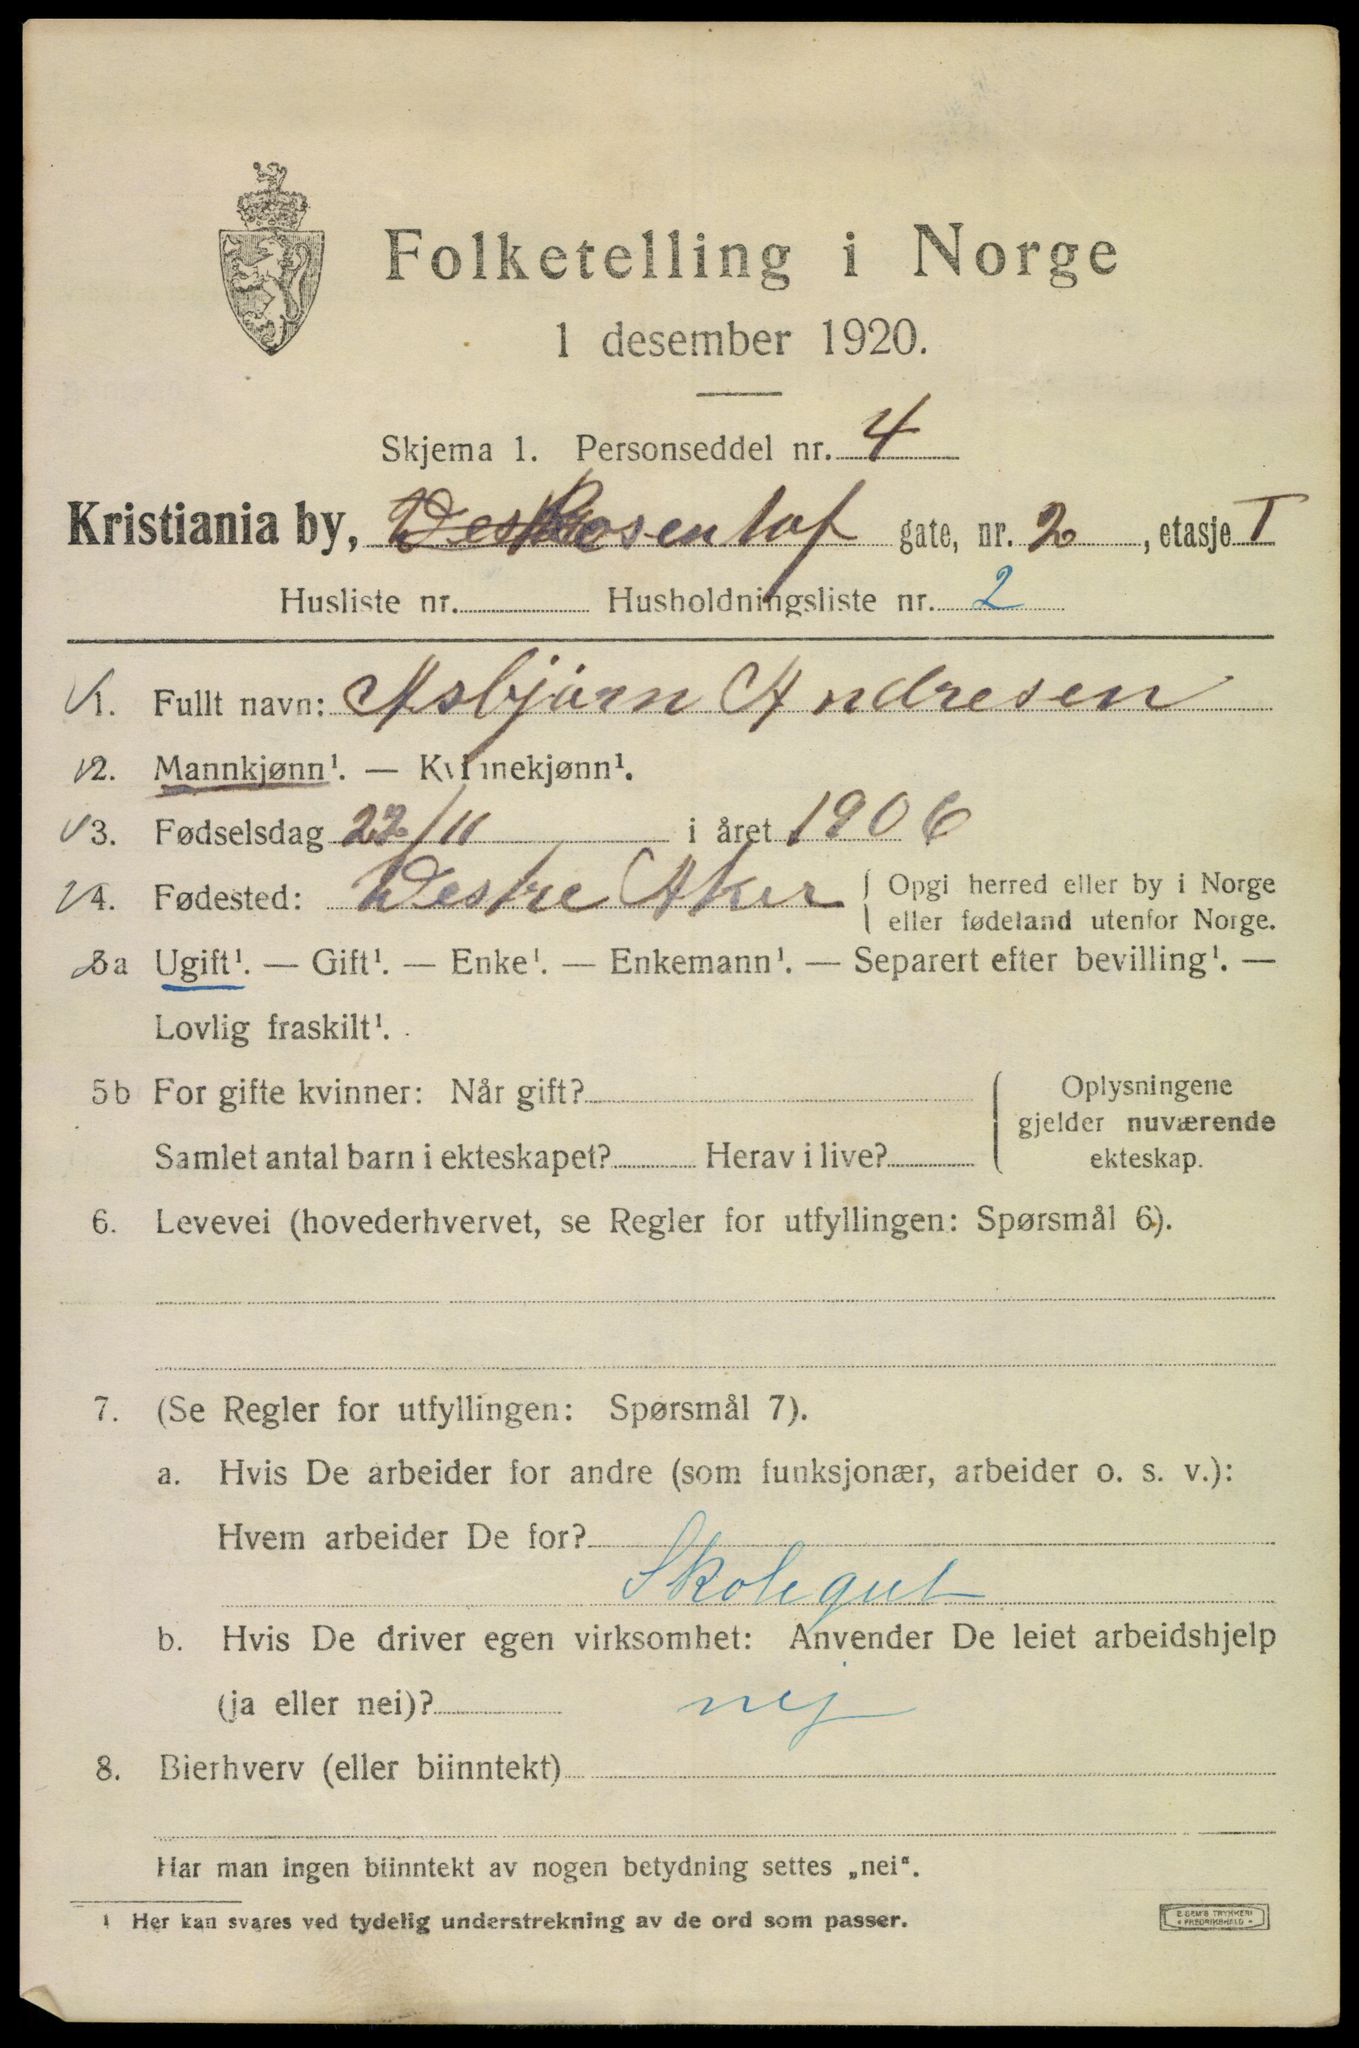 Folketelling i Norge
1 desember 1920.
Skjema 1. Personseddel nr. 4
Kristiania by, Rosenlof gate, nr. 2, etasje I
Husliste nr. Husholdningsliste nr. 2
1. Fullt navn: Asbjørn Andresen
2. Mannkjønn¹. — Kvinnekjønn¹.
3. Fødselsdag 22/11 i året 1906
4. Fødested: Westre Aker { Opgi herred eller by i Norge
eller fødeland utenfor Norge.
5a Ugift¹. — Gift¹. — Enke¹. — Enkemann¹. — Separert efter bevilling¹. —
Lovlig fraskilt¹.
5b For gifte kvinner: Når gift?
Samlet antal barn i ekteskapet? Herav i live?
Oplysningene
gjelder nuværende
ekteskap.
6. Levevei (hovederhvervet, se Regler for utfyllingen: Spørsmål 6).
7. (Se Regler for utfyllingen: Spørsmål 7).
a. Hvis De arbeider for andre (som funksjonær, arbeider o. s. v.):
Hvem arbeider De for?
Skolegut
b. Hvis De driver egen virksomhet: Anvender De leiet arbeidshjelp
(ja eller nei)? nej
8. Bierhverv (eller biinntekt)
Har man ingen biinntekt av nogen betydning settes „nei“.
¹ Her kan svares ved tydelig understrekning av de ord som passer.
E. SEM'S TRYKKERI
FREDRIKSHALD